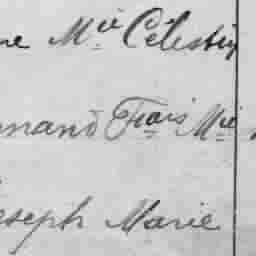 ne Mie Célestin
nand Frois Mie
oseph Marie